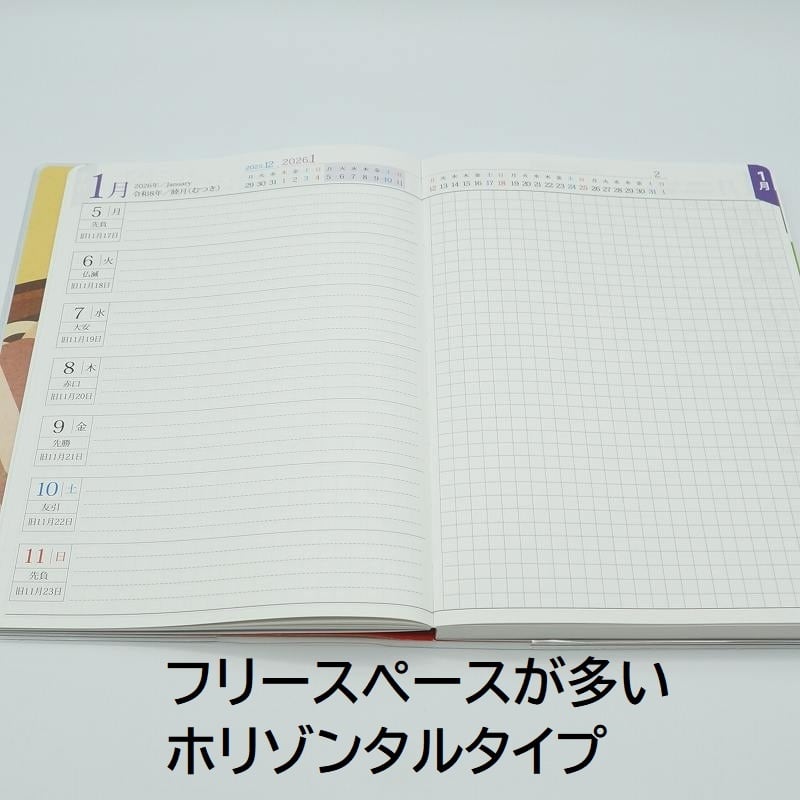 2025.12 2026.1
1月 2026年/January
令和8年/睦月(むつき)
月 火 水 木 金 土 日 月 火 水 木 金 土 日
29 30 31 1 2 3 4 5 6 7 8 9 10 11
2
月 火 水 木 金 土 日 月 火 水 木 金 土 日 月 火 水 木 金 土 日
12 13 14 15 16 17 18 19 20 21 22 23 24 25 26 27 28 29 30 31 1
1月
5 月
先負
旧11月17日
6 火
仏滅
旧11月18日
7 水
大安
旧11月19日
8 木
赤口
旧11月20日
9 金
先勝
旧11月21日
10 土
友引
旧11月22日
11 日
先負
旧11月23日
フリースペースが多い
ホリゾンタルタイプ